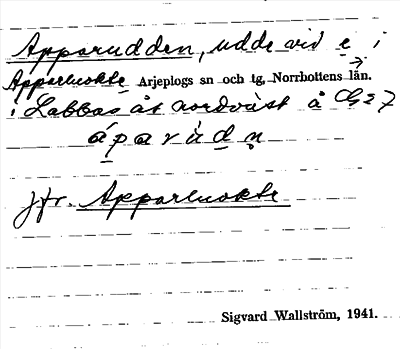 Apparudden, udde vid e i
Apparluokte Arjeplogs sn och tg, Norrbottens län.
i Labbas åt nordväst å Gg 27
áparùdn
jfr. Apparluokte
Sigvard Wallström, 1941.